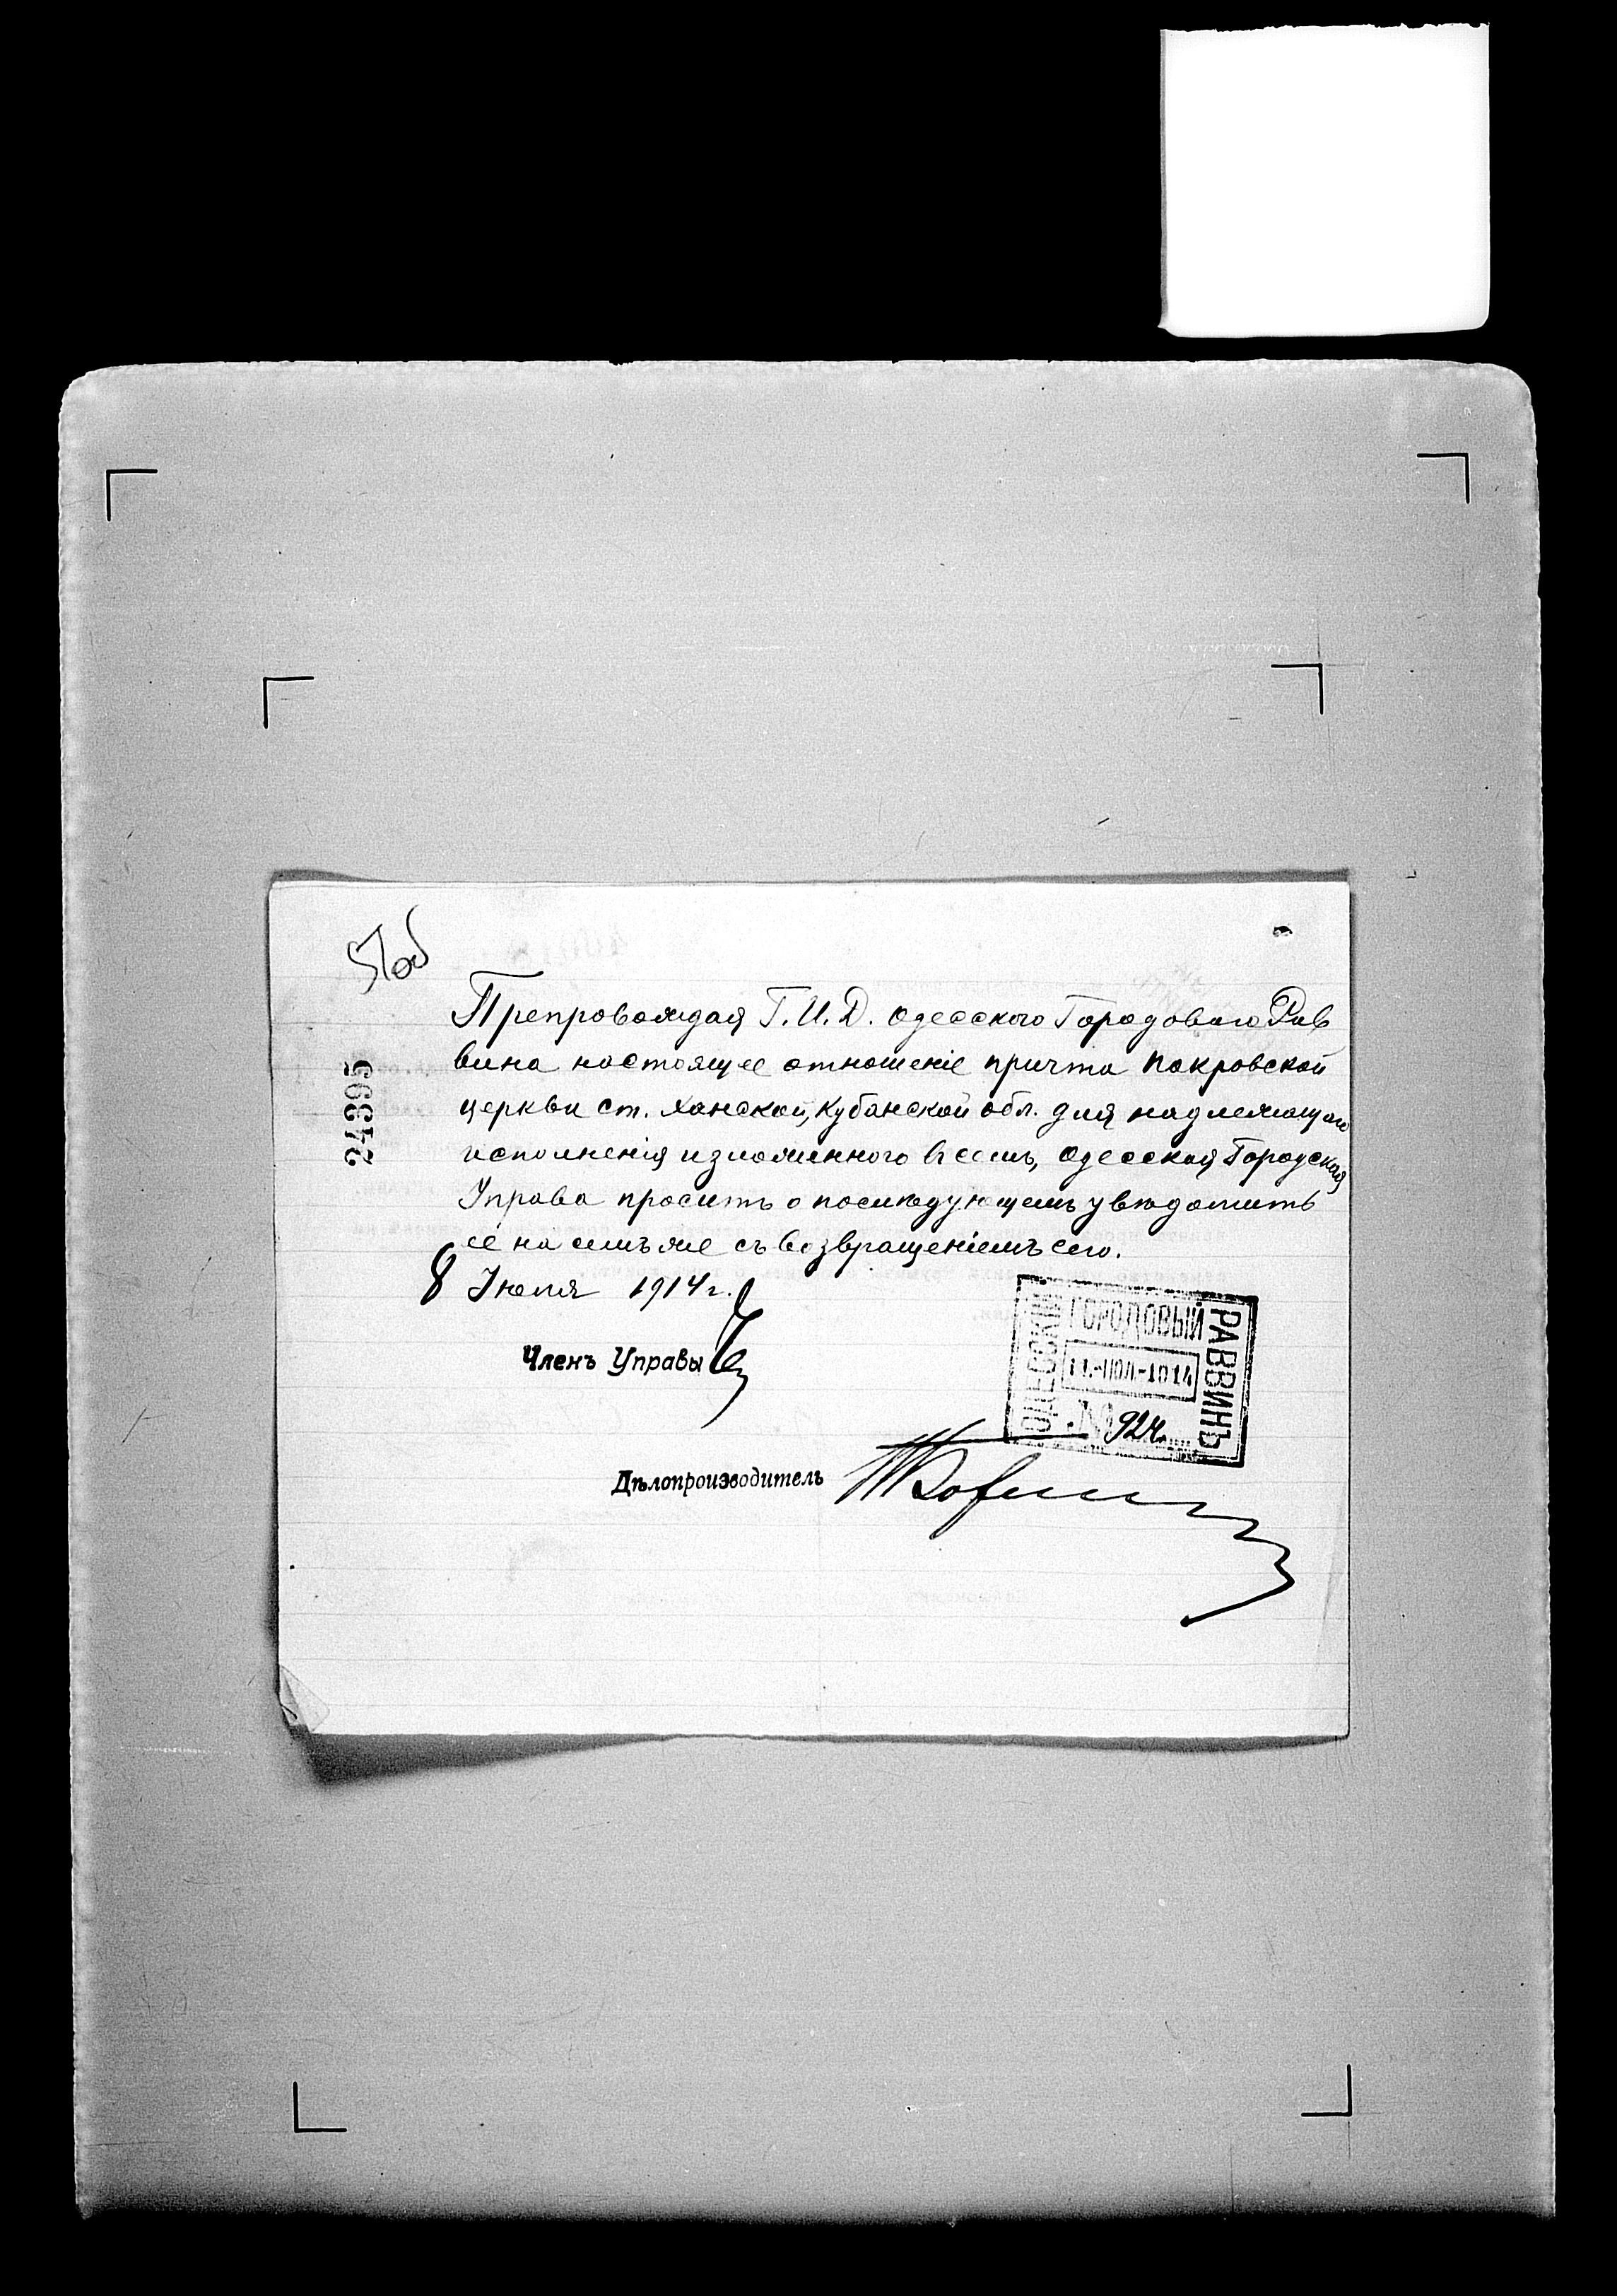 57об
Препровождая Г. И. Д. Одесского Городоваго Рав
вина настоящее отношеніе причта Покровской
церкви ст. Ханской, Кубанской обл. для надлежащаго
исполненія изложеннаго въ семъ, Одесская Городская
Управа проситъ о послѣдующемъ увѣдомить
её на семъ же съ возвращеніемъ сего.
8 Іюля 1914 г.
24395
Членъ Управы
ОДЕССКІЙ
ГОРОДОВЫЙ
РАВВИНЪ
11-ІЮЛ-1914
№ 924.
Дѣлопроизводитель